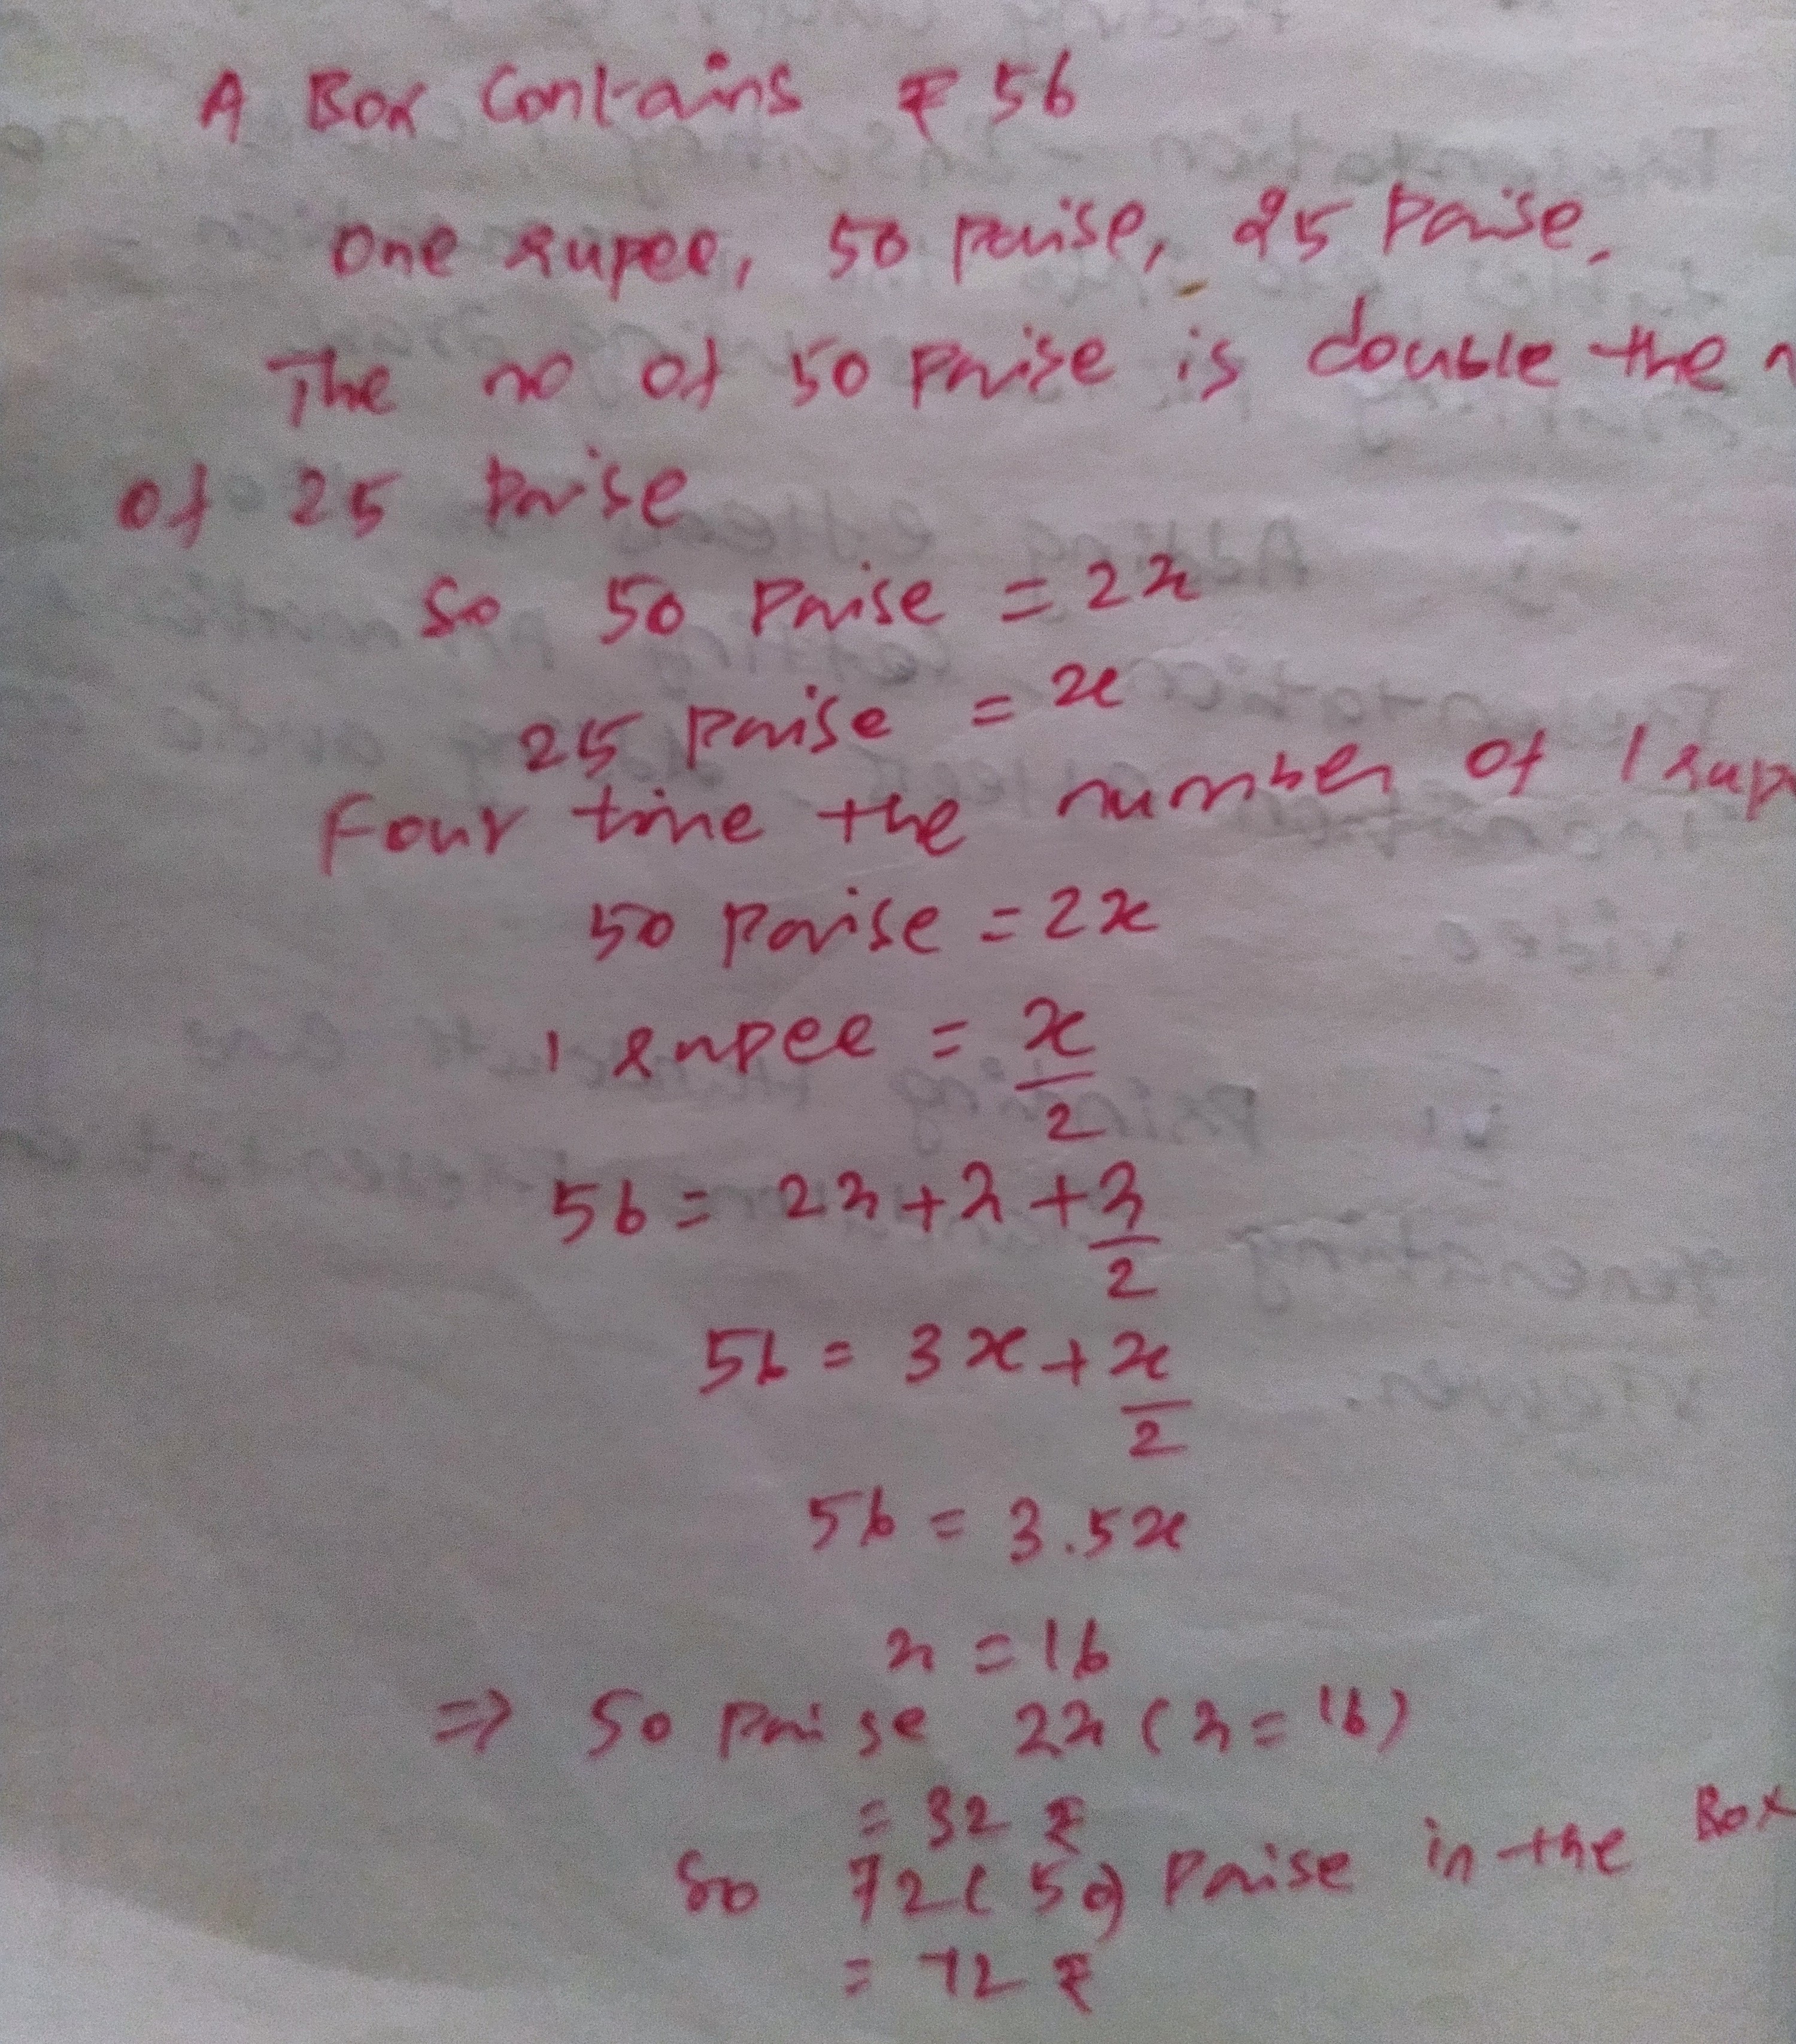 A Box Contains ₹ 56
One rupee, 50 paise, 25 Paise.
The no of 50 Paise is double the
of 25 Paise
So 50 Paise = 2x
25 Paise = x
Four time the number of 1 rup
50 Paise = 2x
1 rupee = x/2
56 = 2x + x + x/2
56 = 3x + x/2
56 = 3.5x
x = 16
⇒ 50 Paise 2x (x = 16)
= 32 ₹
So 72 (50) Paise in the Box
= 72 ₹